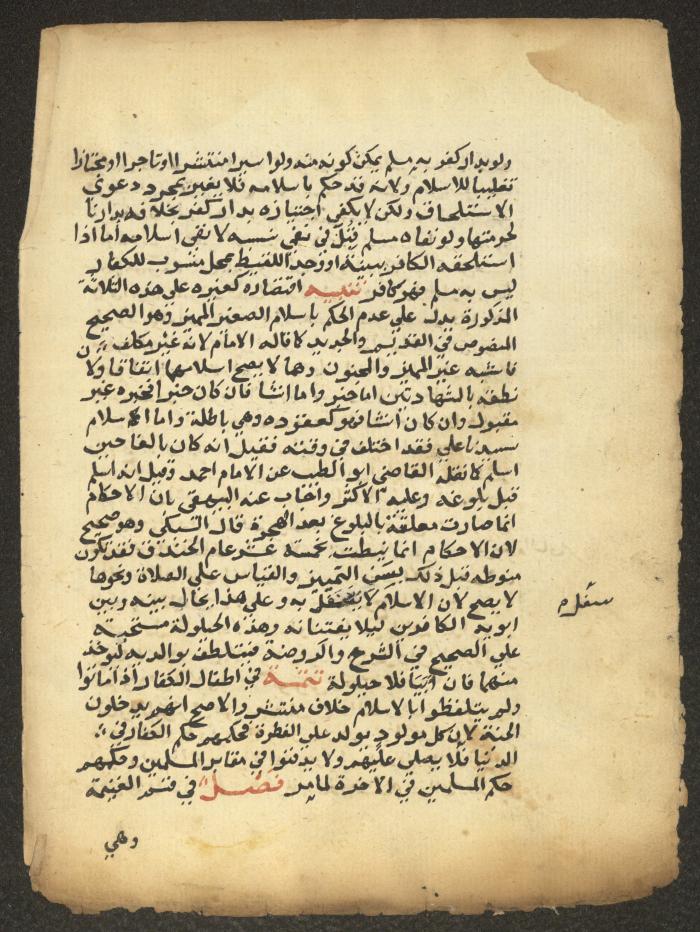 ولو بدار كفر به مسلم يمكن كونه منه ولو اسيرا منتشرا او تاجرا او مجتازا
تغليبا للاسلام ولانه قد حكم باسلامه فلا يغير بمجرد دعوى
الاستلحاق ولكن لا يكفي اجتيازه بدار كفر بخلافه بدارنا
لحرمتها ولو نفاه مسلم قبل في نفي نسبه لا نفي اسلامه اما اذا
استلحقه الكافر ببينة او وجد اللقيط بمحل منسوب للكفار
ليس به مسلم فهو كافر تنبيه اقتصاره كغيره على هذه الثلاثة
المذكورة يدل على عدم الحكم باسلام الصغير المميز وهو الصحيح
المنصوص في القديم والجديد كما قاله الامام لانه غير مكلف
فاشبه غير المميز والمجنون وهما لا يصح اسلامهما اتفاقا ولان
نطقه بالشهادتين اما خبر واما انشا فان كان خبرا فخبره غير
مقبول وان كان انشا فهو كعقوده وهي باطلة واما اسلام
سيدنا علي فقد اختلف في وقته فقيل انه كان بالغا حين
اسلم كما نقله القاضي ابو الطيب عن الامام احمد وقيل انه اسلم
قبل بلوغه وعليه الاكثر واجاب عنه البيهقي بان الاحكام
انما صارت معلقة بالبلوغ بعد الهجرة قال السبكي وهو صحيح
لان الاحكام انما نيطت بخمسة عشر عام الخندق فقد تكون
منوطه قبل ذلك بسن التمييز والقياس على الصلاة ونحوها
لا يصح لان الاسلام لا يتنفل به وعلى هذا يحال بينه وبين
ابويه الكافرين ليلا يفتنانه وهذه الحيلولة مستحبة
على الصحيح في الشرح والروضة فيتلطف بوالديه ليوخذ
منهما فان ابيا فلا حيلولة تتمة في اطفال الكفار اذا ماتوا
ولم يتلفظوا بالاسلام خلاف منتشر والاصح انهم يدخلون
الجنة لان كل مولود يولد على الفطرة فحكمهم حكم الكفار في
الدنيا فلا يصلى عليهم ولا يدفنوا في مقابر المسلمين وحكمهم
حكم المسلمين في الاخرة لما مر فصل في قسم الغنيمة
وهي